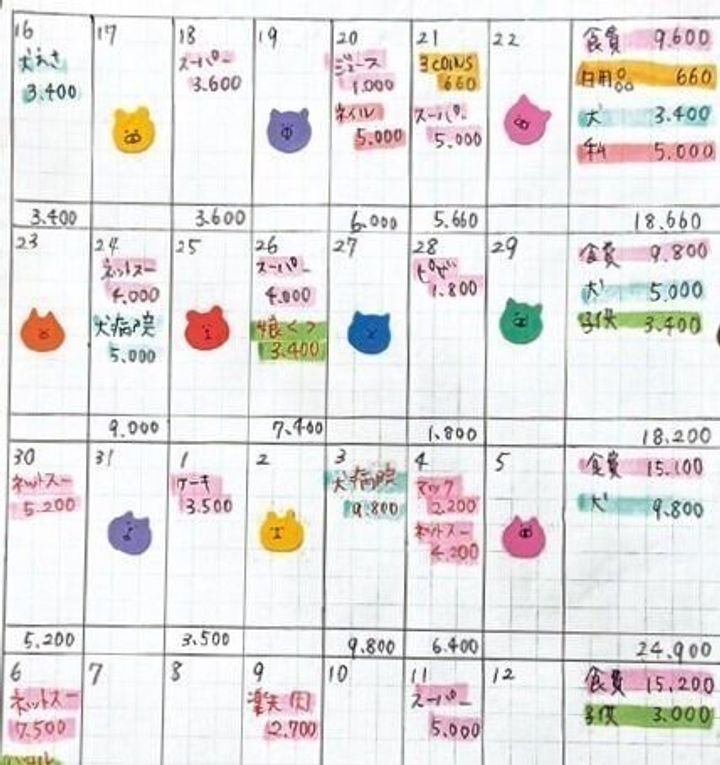 16 17 18 19 20 21 22
食費 9.600
犬えさ スーパー ジュース 3COINS
日用品 660
3.400 3.600 1.000 660
犬 3.400
ネイル スーパー
私 5.000
5.000 5.000
3.400 3.600 6.000 5.660 18.660
23 24 25 26 27 28 29
食費 9.800
ネットスー スーパー ピザ
4.000 4.000 1.800
犬 5.000
犬病院 娘くつ
子供 3.400
5.000 3.400
9.000 7.400 1.800 18.200
30 31 1 2 3 4 5
食費 15.100
ネットスー ケーキ 犬病院 マック
5.200 3.500 9.800 2.200
犬 9.800
ネットスー
4.200
5.200 3.500 9.800 6.400 24.900
6 7 8 9 10 11 12
食費 15.200
ネットスー 楽天 スーパー
子供 3.000
7.500 2.700 5.000